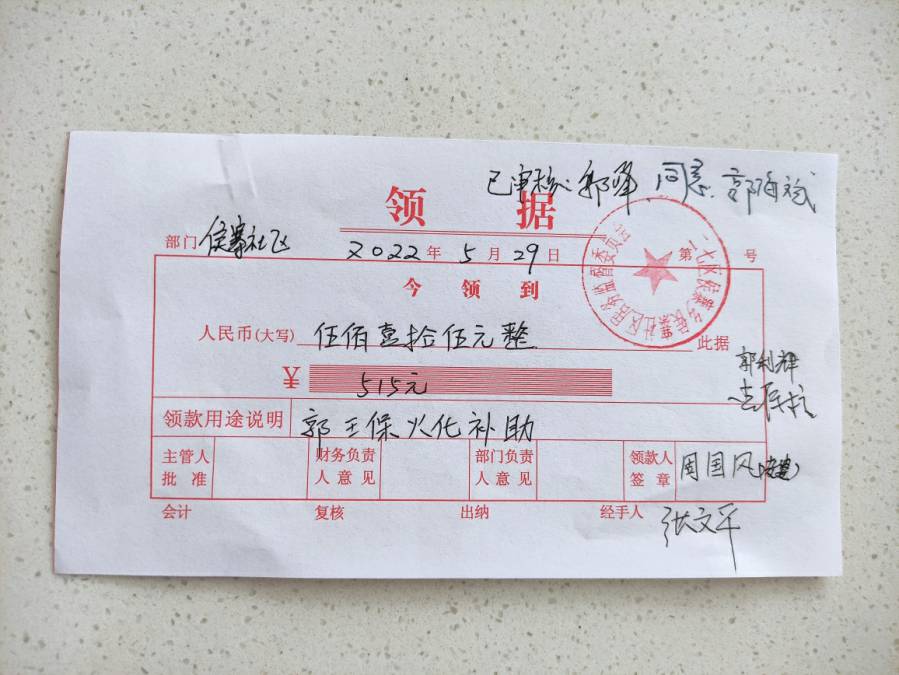 已审核 郭峰 同意
领据
部门 侯寨社区 2022年5月29日 第 号
今领到
人民币(大写) 伍佰壹拾伍元整 此据
¥ 515元
郭利辉
领款用途说明 郭王保火化补助
主管人批准 财务负责人意见 部门负责人意见 领款人签章 周国风
会计 复核 出纳 经手人 张文平